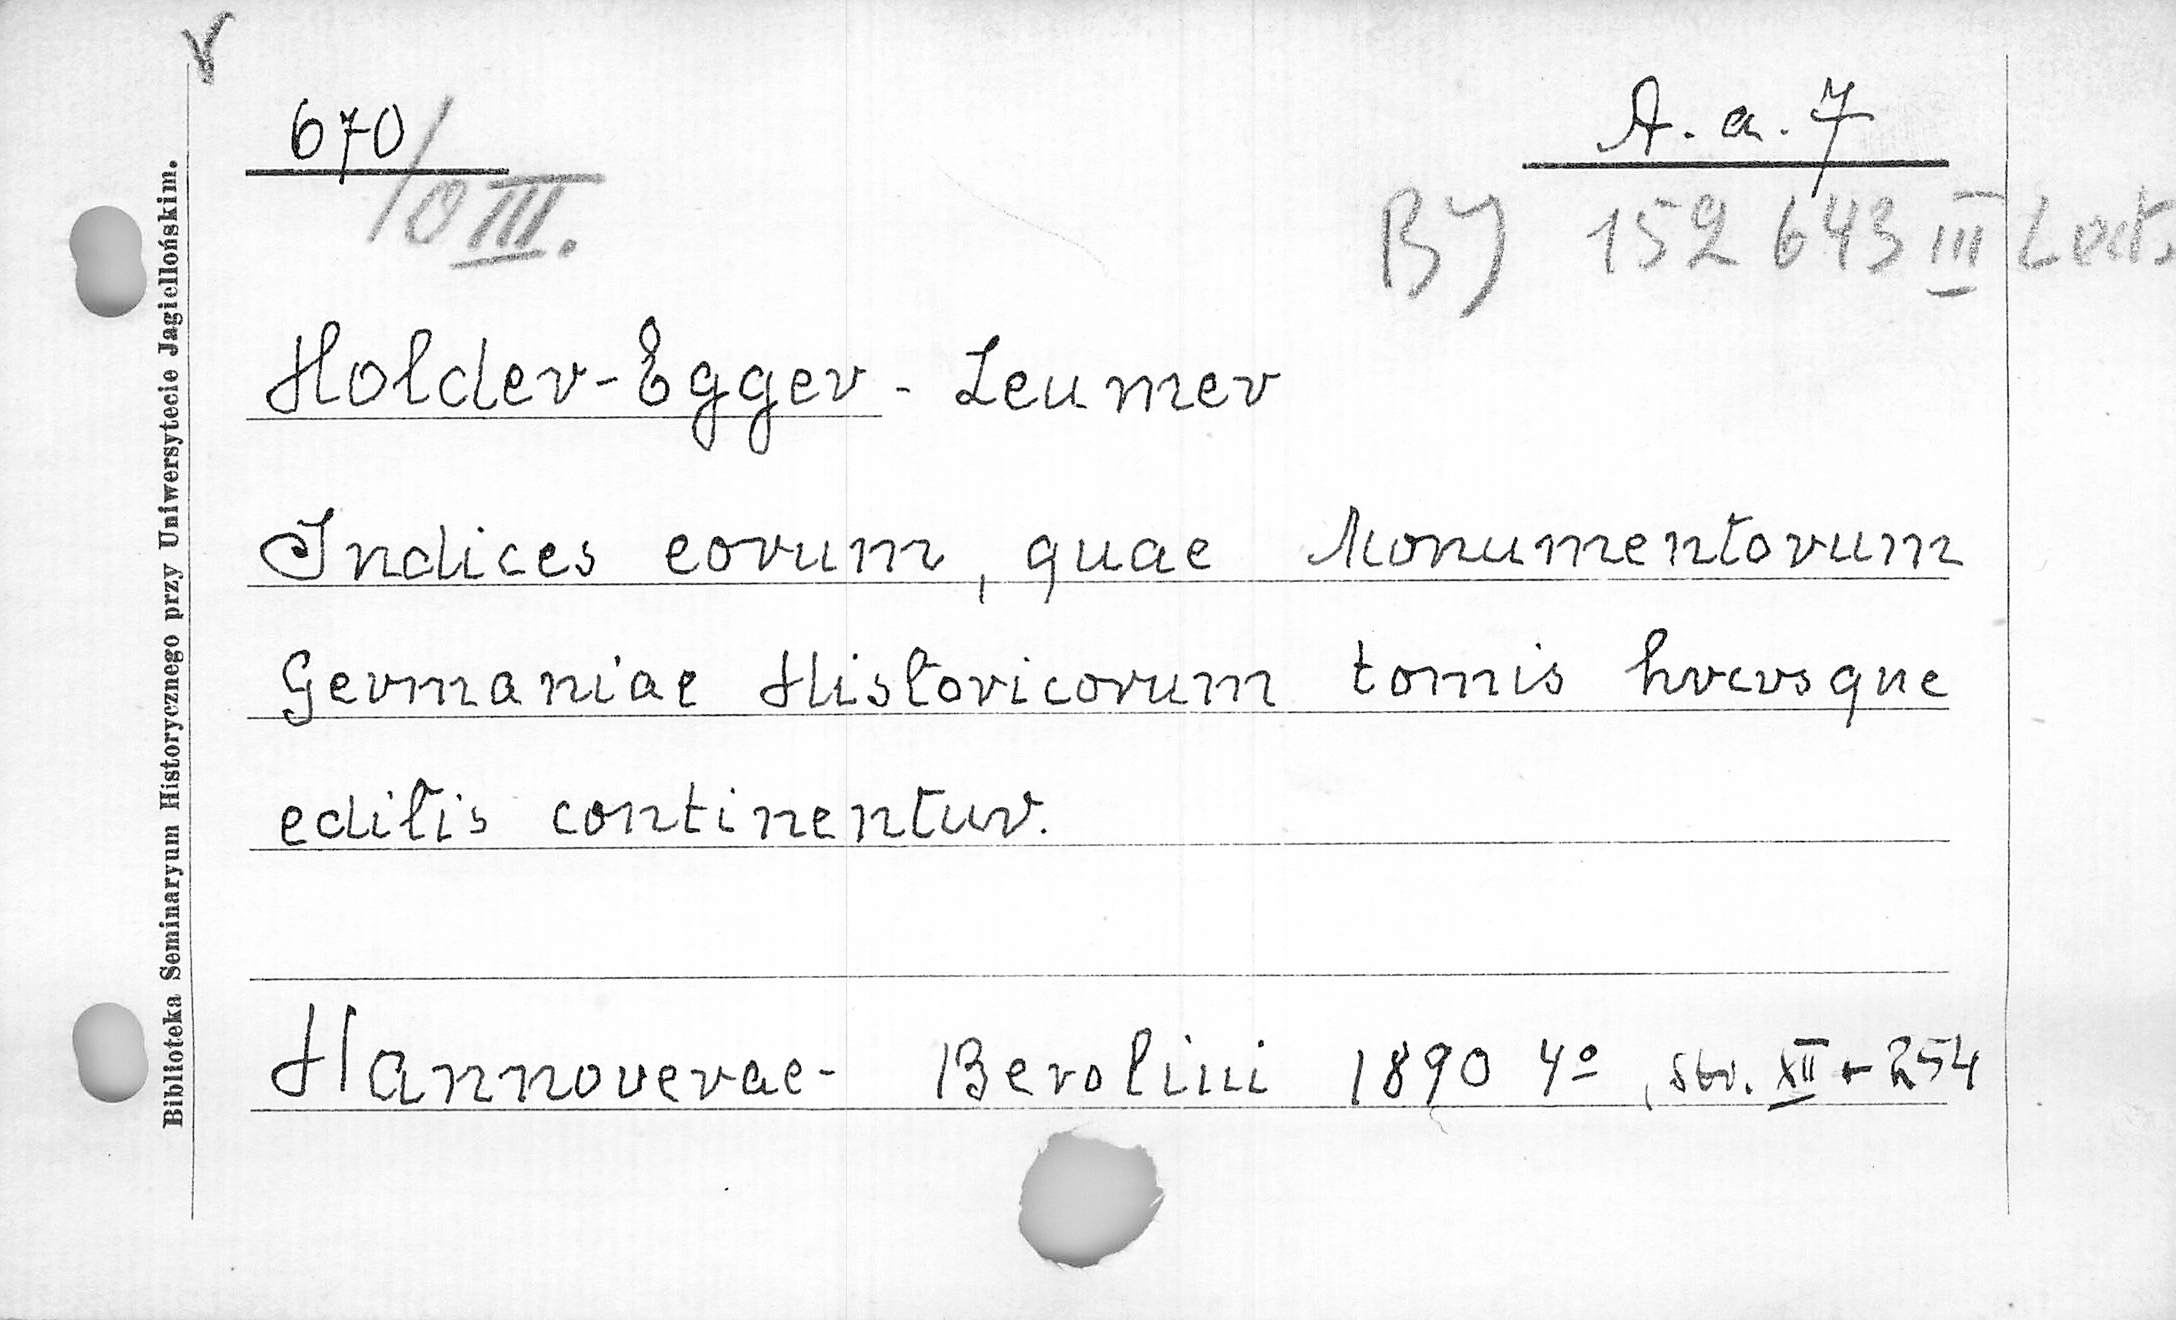 670/0 III.
A. a. 7
BJ 152 643 III Lect.
Holder-Egger - Leumer
Indices eorum, quae Monumentorum
Germaniae Historicorum tomis hvcvsque
editis continentur.
Hannoverae- Berolini 1890 4º, str. XII + 254
Biblioteka Seminaryum Historycznego przy Uniwersytecie Jagiellońskim.